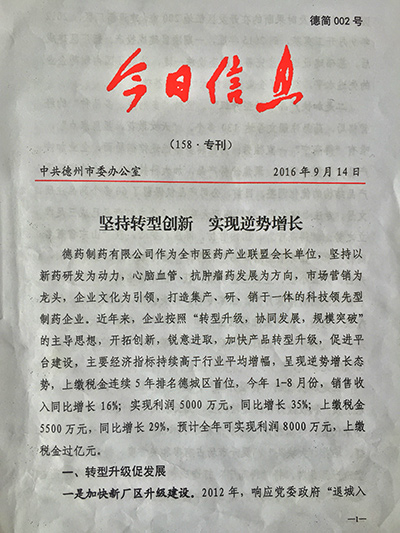 德简 002 号
今日信息
（158·专刊）
中共德州市委办公室 2016 年 9 月 14 日
坚持转型创新 实现逆势增长
德药制药有限公司作为全市医药产业联盟会长单位，坚持以
新药研发为动力，心脑血管、抗肿瘤药发展为方向，市场营销为
龙头，企业文化为引领，打造集产、研、销于一体的科技领先型
制药企业。近年来，企业按照“转型升级，协同发展，规模突破”
的主导思想，开拓创新，锐意进取，加快产品转型升级，促进平
台建设，主要经济指标持续高于行业平均增幅，呈现逆势增长态
势，上缴税金连续 5 年排名德城区首位，今年 1-8 月份，销售收
入同比增长 16%；实现利润 5000 万元，同比增长 35%；上缴税金
5500 万元，同比增长 29%，预计全年可实现利润 8000 万元，上缴
税金过亿元。
一、转型升级促发展
一是加快新厂区升级建设。2012 年，响应党委政府“退城入
—1—